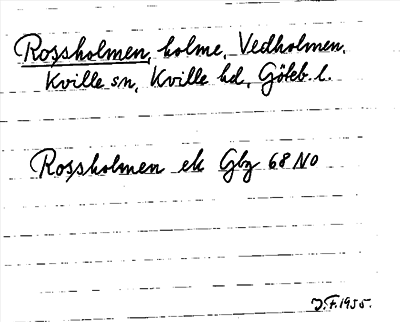 Rossholmen, holme, Vedholmen,
Kville sn, Kville hd, Göteb. l.
Rossholmen ek Gbg 68 NO
J.F. 1955.